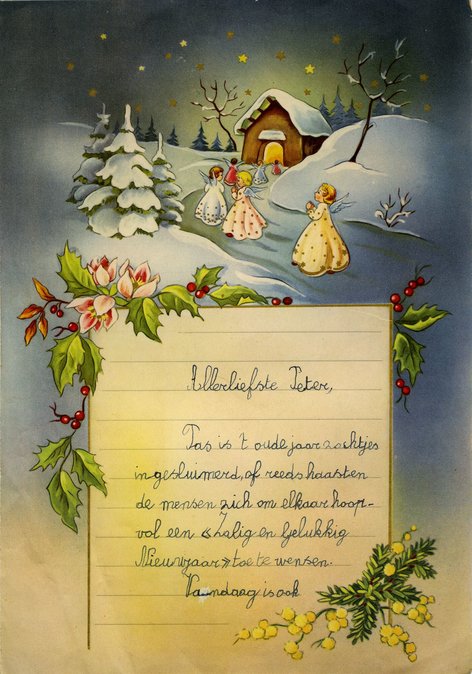 Allerliefste Peter,
Pas is 't oude jaar zachtjes
ingesluimerd, of reeds haasten
de mensen zich om elkaar hoop-
vol een « Zalig en Gelukkig
Nieuwjaar » toe te wensen.
Vandaag is ook